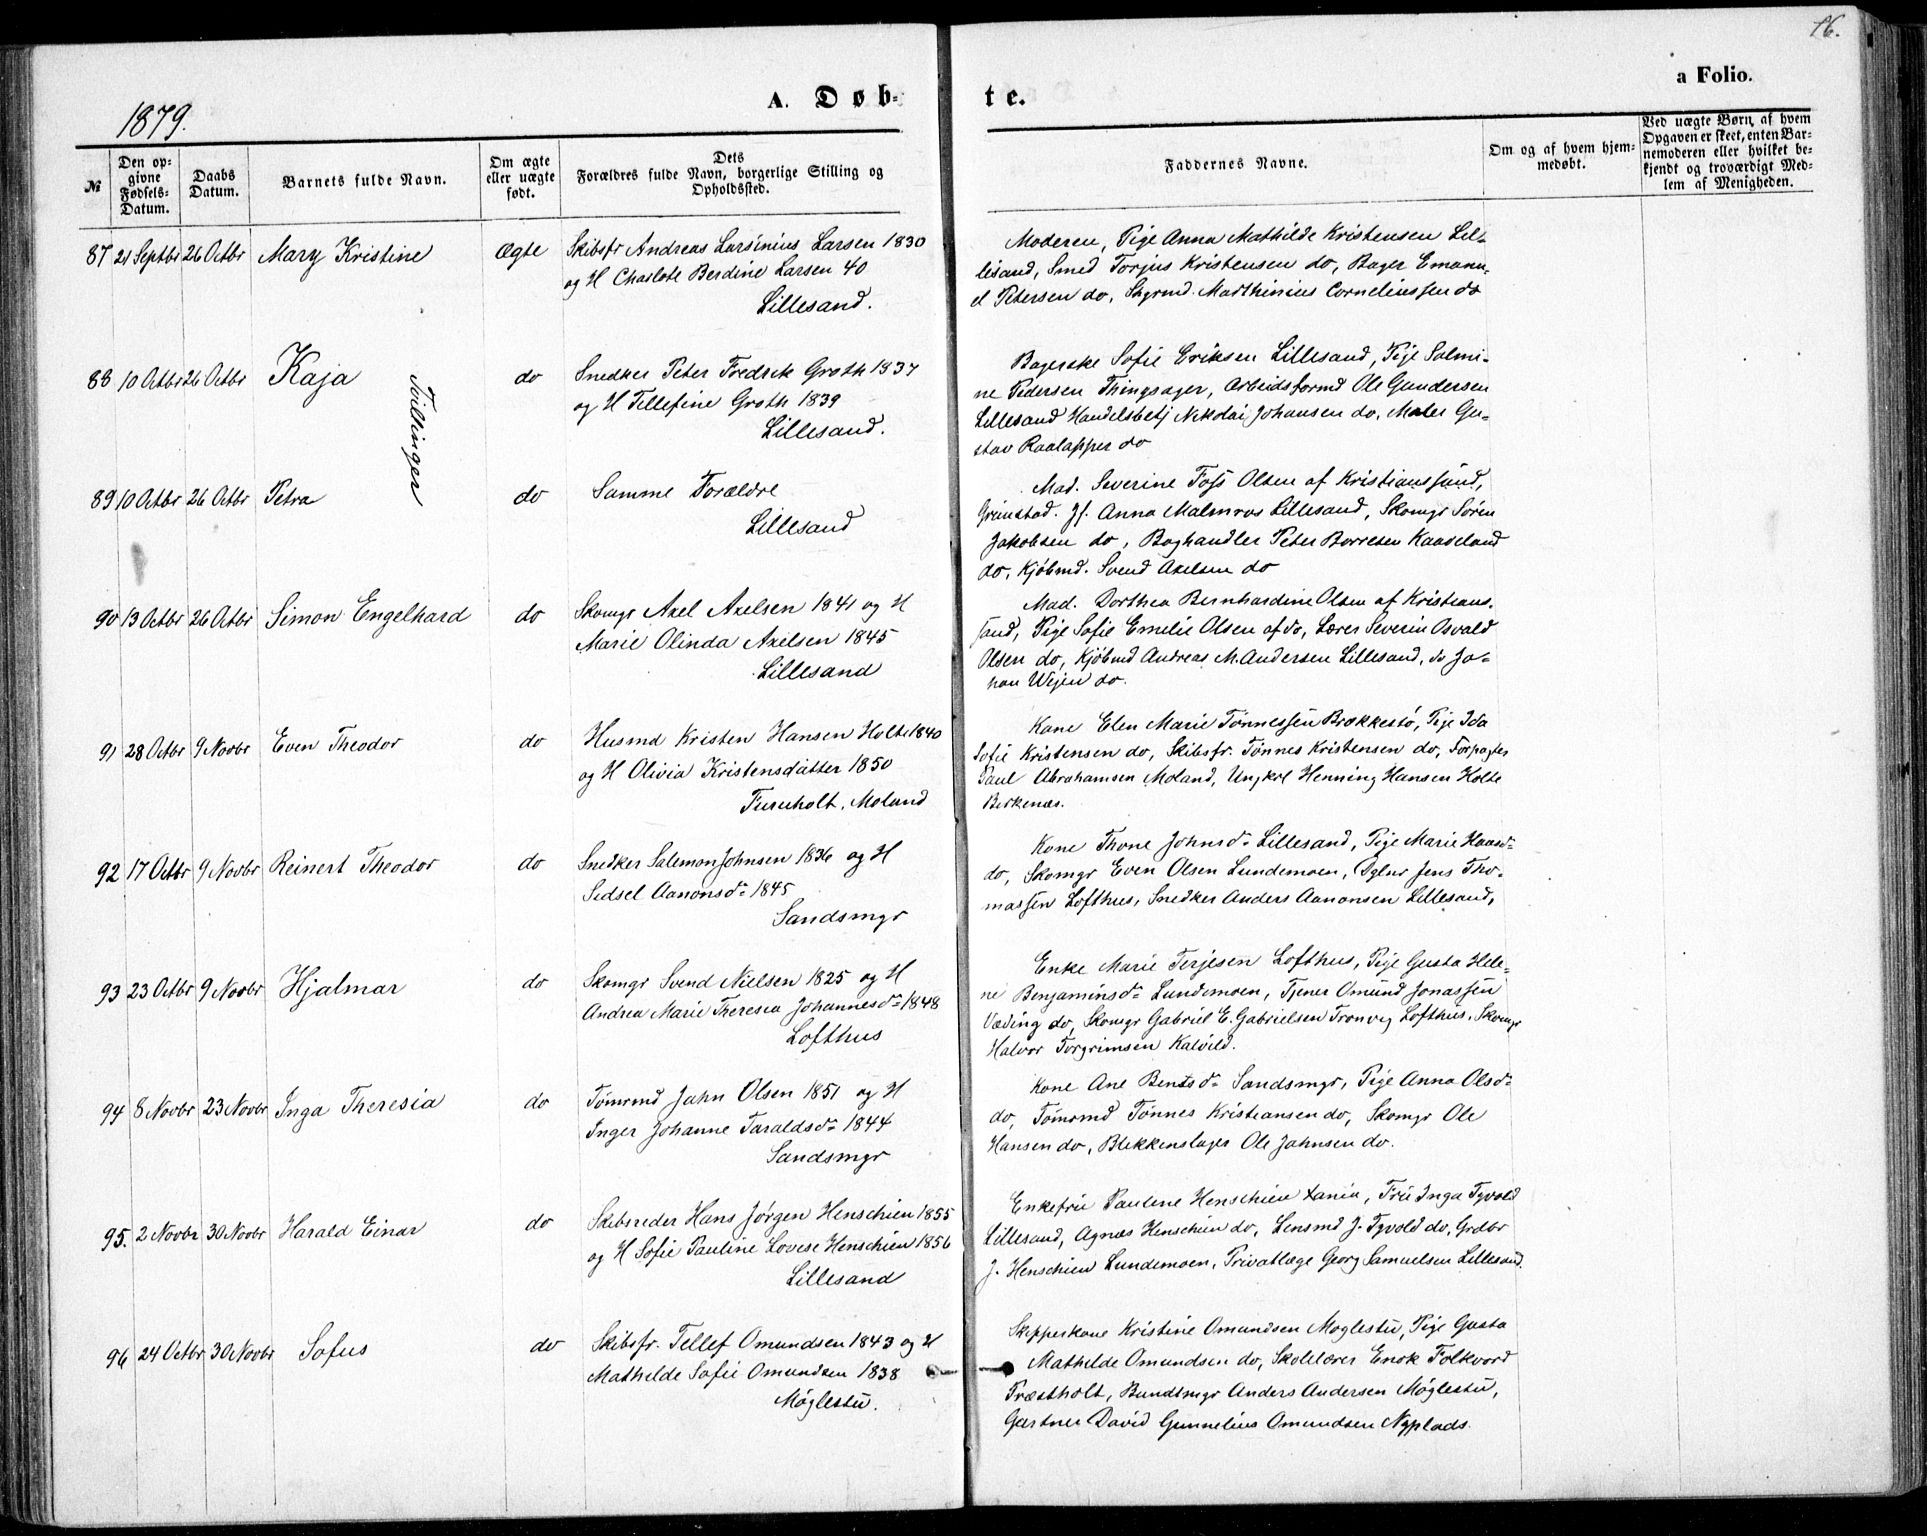 16.
a Folio.
1879.
A. Døb-
te.
№
Den op-
givne
Fødsels-
Datum.
Daabs
Datum.
Barnets fulde Navn.
Om ægte
eller uægte
født.
Dets
Forældres fulde Navn, borgerlige Stilling og
Opholdssted.
Faddernes Navne.
Om og af hvem hjem-
medøbt.
Ved uægte Børn, af hvem
Opgaven er skeet, enten Bar-
nemoderen eller hvilket be-
kjendt og troværdigt Med-
lem af Menigheden.
87 21 Septbr 26 Octbr Mary Kristine Ægte Skibsfr Andreas Larsinius Larsen 1830
og H Charlote Berdine Larsen 40
Lillesand.
Moderen, Pige Anna Mathilde Kristensen Lil-
lesand, Smed Torjus Kristensen do, Bager Emanu-
el Petersen do, Skgrmd. Marthinius Corneliussen do
88 10 Octbr 26 Octbr Kaja do Snedker Peter Fredrik Groth 1837
og H Tellefine Groth 1839
Lillesand.
Tvillinger
Bagerske Sofie Eriksen Lillesand, Pige Salmi-
ne Pedersen Thingsager, Arbeidsformd Ole Gundersen
Lillesand Handelsbetj Nikolai Johansen do, Maler Gu-
stav Raalapper do
89 10 Octbr 26 Octbr Petra do Samme Forældre
Lillesand
Mad. Severine Foss Olsen af Kristianssund,
Grimstad. Jf. Anna Malmros Lillesand, Skomgr Søren
Jakobsen do, Boghandler Peter Borresen Kaaveland
do, Kjøbmd. Svend Axelsen do
90 13 Octbr 26 Octbr Simon Engelhard do Skomgr Axel Axelsen 1841 og H
Marie Olinda Axelsen 1845
Lillesand
Mad. Dorthea Bernhardine Olsen af Kristians-
sand, Pige Sofie Emelie Olsen af do, Lærer Severin Osvald
Olsen do, Kjøbmd Andreas M. Andersen Lillesand, do Jo-
han Wejen do.
91 28 Octbr 9 Novbr Even Theodor do Husmd Kristen Hansen Holte 1840
og H Olivia Kristensdatter 1850
Furuholt, Moland
Kone Elen Marie Tønnessen Brækkestø, Pige Ida
Sofie Kristensen do, Skibsfr. Tønnes Kristensen do, Forpagter
Paul Abrahamsen Moland, Ungkrl Henning Hansen Holte
Birkenæs.
92 17 Octbr 9 Novbr Reinert Theodor do Snedker Salemon Johnsen 1836 og H
Sidsel Aanonsdr 1845
Sandsmgr
Kone Thone Johnsdr Lillesand, Pige Marie Haasdr
do, Skomgr Even Olsen Lundemoen, Jens Tho-
massen Lofthus, Snedker Anders Aanonsen Lillesand,
93 23 Octbr 9 Novbr Hjalmar do Skomgr Svend Nielsen 1825 og H
Andrea Marie Theresia Johannesdr 1848
Lofthus
Enke Marie Terjesen Lofthus, Pige Gusta Hele-
ne Benjaminsdr Lundemoen, Tjener Omund Jonassen
Væding do, Skomgr Gabriel E. Gabrielsen Tronvig Lofthus, Skomgr
Halvor Torgrimsen Kalvild.
94 8 Novbr 23 Novbr Inga Theresia do Tømrmd John Olsen 1851 og H
Inger Johanne Taraldsdr 1844
Sandsmgr
Kone Ane Bentsdr Sandsmgr, Pige Anna Olsdr
do, Tømrmd Tønnes Kristiansen do, Skomgr Ole
Hansen do, Blikkenslager Ole Johnsen do.
95. 2 Novbr 30 Novbr Harald Einar do Skibsreder Hans Jørgen Henschien 1855
og H Sofie Pauline Lovise Henschien 1856
Lillesand
Enkefru Pauline Henschien Xania, Fru Inga Tyvold
Lillesand, Agnæs Henschien do, Lensmd J. Tyvold do, Grdbr
J. Henschien Lundemoen, Privatlæge Georg Samuelsen Lillesand.
96 24 Octbr 30 Novbr Sofus do Skibsfr. Tellef Omundsen 1843 og H
Mathilde Sofie Omundsen 1838
Møglestu.
Skipperkone Kristine Omundsen Moglestu, Pige Gusta
Mathilde Omundsen do, Skolelærer Enok Folkvord
Træstholt, Bundtmgr Anders Andersen Møglestu,
Gartner David Gunnelius Omundsen Nyplads.